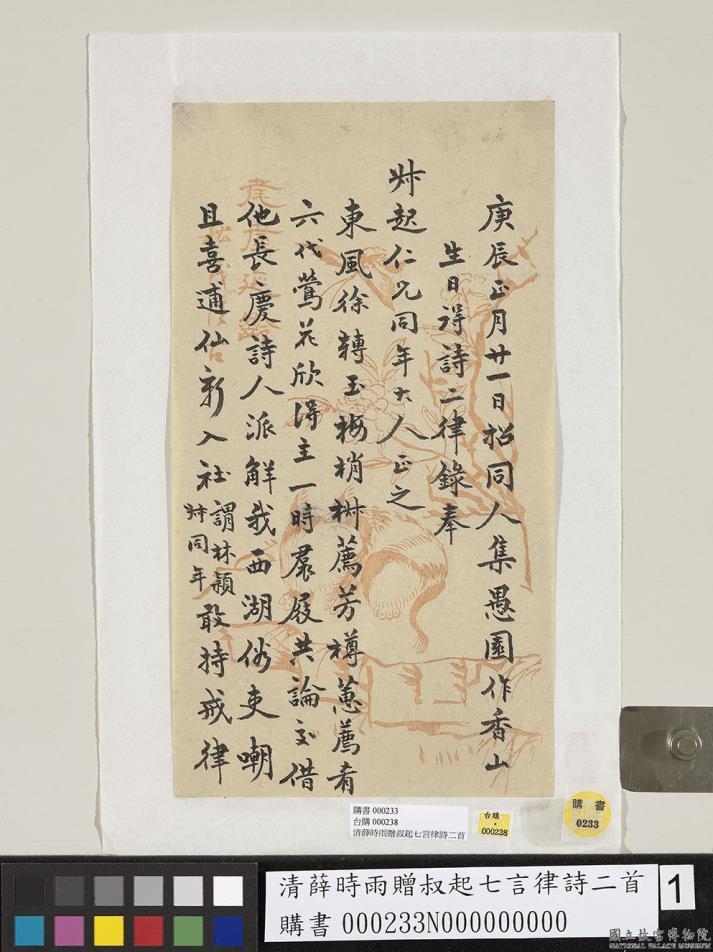 庚辰正月廿一日招同人集愚園作香山
生日得詩二律錄奉
叔起仁兄同年大人正之
東風徐轉玉梅梢椒薦芳樽蕙薦肴
六代鶯花欣得主一時裙屐共論交借
他長慶詩人派解我西湖俗吏嘲
且喜逋仙新入社謂林穎叔同年敢持戒律
購書 000233
台購 000238
清薛時雨贈叔起七言律詩二首
台購
000238
購書
0233
清薛時雨贈叔起七言律詩二首
購書 000233N000000000
1
國立故宮博物院
NATIONAL PALACE MUSEUM